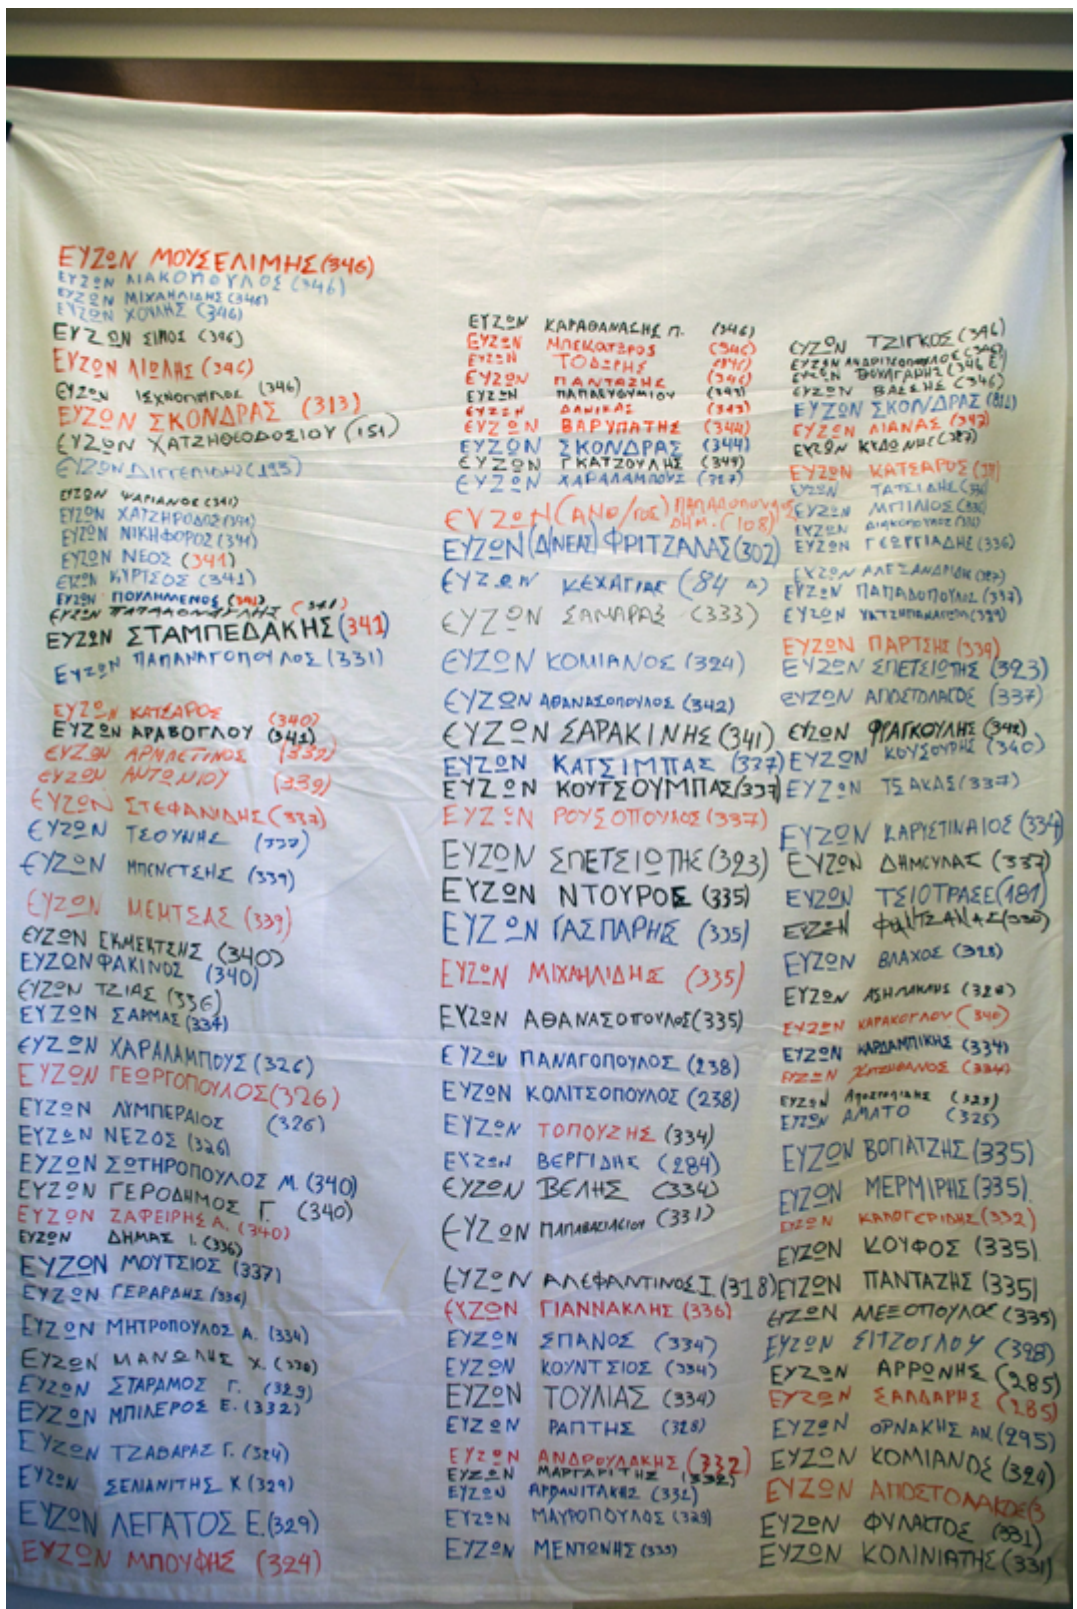 ΕΥΖΩΝ ΜΟΥΣΕΛΙΜΗΣ (346)
ΕΥΖΩΝ ΛΙΑΚΟΠΟΥΛΟΣ (346)
ΕΥΖΩΝ ΜΙΧΑΗΛΙΔΗΣ (346)
ΕΥΖΩΝ ΧΟΥΛΗΣ (346)
ΕΥΖΩΝ ΣΙΜΟΣ (346)
ΕΥΖΩΝ ΛΙΟΛΗΣ (346)
ΕΥΖΩΝ (346)
ΕΥΖΩΝ ΣΚΟΝΔΡΑΣ (313)
ΕΥΖΩΝ ΧΑΤΖΗΘΕΟΔΟΣΙΟΥ (151)
ΕΥΖΩΝ
ΕΥΖΩΝ ΨΑΡΙΑΝΟΣ (341)
ΕΥΖΩΝ ΧΑΤΖΗΡΟΔΟΣ (341)
ΕΥΖΩΝ ΝΙΚΗΦΟΡΟΣ (341)
ΕΥΖΩΝ ΝΕΟΣ (341)
ΕΥΖΩΝ ΚΥΡΤΣΟΣ (341)
ΕΥΖΩΝ ΠΟΥΛΗΜΕΝΟΣ (341)
ΕΥΖΩΝ (341)
ΕΥΖΩΝ ΣΤΑΜΠΕΔΑΚΗΣ (341)
ΕΥΖΩΝ ΠΑΠΑΝΑΓΟΠΟΥΛΟΣ (331)
ΕΥΖΩΝ ΚΑΤΣΑΡΟΣ (340)
ΕΥΖΩΝ ΑΡΑΒΟΓΛΟΥ (341)
ΕΥΖΩΝ (339)
ΕΥΖΩΝ ΑΝΤΩΝΙΟΥ (339)
ΕΥΖΩΝ ΣΤΕΦΑΝΙΔΗΣ (337)
ΕΥΖΩΝ ΤΣΟΥΝΗΣ (339)
ΕΥΖΩΝ ΜΠΕΝΕΤΣΗΣ (339)
ΕΥΖΩΝ ΜΕΜΤΣΑΣ (339)
ΕΥΖΩΝ ΕΚΜΕΚΤΣΗΣ (340)
ΕΥΖΩΝ ΦΑΚΙΝΟΣ (340)
ΕΥΖΩΝ ΤΖΙΑΣ (336)
ΕΥΖΩΝ ΣΑΡΜΑΣ (334)
ΕΥΖΩΝ ΧΑΡΑΛΑΜΠΟΥΣ (326)
ΕΥΖΩΝ ΓΕΩΡΓΟΠΟΥΛΟΣ (326)
ΕΥΖΩΝ ΛΥΜΠΕΡΑΙΟΣ (326)
ΕΥΖΩΝ ΝΕΖΟΣ (326)
ΕΥΖΩΝ ΣΩΤΗΡΟΠΟΥΛΟΣ Μ. (340)
ΕΥΖΩΝ ΓΕΡΟΔΗΜΟΣ Γ. (340)
ΕΥΖΩΝ ΖΑΦΕΙΡΗΣ Α. (340)
ΕΥΖΩΝ ΔΗΜΑΣ Ι. (336)
ΕΥΖΩΝ ΜΟΥΤΣΙΟΣ (337)
ΕΥΖΩΝ ΓΕΡΑΡΔΗΣ (336)
ΕΥΖΩΝ ΜΗΤΡΟΠΟΥΛΟΣ Α. (334)
ΕΥΖΩΝ ΜΑΝΩΛΗΣ Χ. (330)
ΕΥΖΩΝ ΣΤΑΡΑΜΟΣ Γ. (329)
ΕΥΖΩΝ ΜΠΙΛΕΡΟΣ Ε. (332)
ΕΥΖΩΝ ΤΖΑΒΑΡΑΣ Γ. (324)
ΕΥΖΩΝ ΣΕΛΙΑΝΙΤΗΣ Κ (329)
ΕΥΖΩΝ ΛΕΓΑΤΟΣ Ε. (329)
ΕΥΖΩΝ ΜΠΟΥΦΗΣ (324)
ΕΥΖΩΝ ΚΑΡΑΘΑΝΑΣΗΣ Π. (346)
ΕΥΖΩΝ ΜΠΕΚΑΤΩΡΟΣ (346)
ΕΥΖΩΝ ΤΟΔΩΡΗΣ (346)
ΕΥΖΩΝ ΠΑΝΤΑΖΗΣ (346)
ΕΥΖΩΝ ΠΑΠΑΕΥΘΥΜΙΟΥ (343)
ΕΥΖΩΝ ΔΑΝΙΚΑΣ (343)
ΕΥΖΩΝ ΒΑΡΥΠΑΤΗΣ (344)
ΕΥΖΩΝ ΣΚΟΝΔΡΑΣ (344)
ΕΥΖΩΝ ΓΚΑΤΖΟΥΛΗΣ (344)
ΕΥΖΩΝ ΧΑΡΑΛΑΜΠΟΥΣ (327)
ΕΥΖΩΝ (ΑΝΘ/ΓΟΣ) ΠΑΠΑΔΟΠΟΥΛΟΣ ΔΗΜ. (108)
ΕΥΖΩΝ (Δ/ΝΕΑΣ) ΦΡΙΤΖΑΛΑΣ (302)
ΕΥΖΩΝ ΚΕΧΑΓΙΑΣ (84 Δ)
ΕΥΖΩΝ ΣΑΜΑΡΑΣ (333)
ΕΥΖΩΝ ΚΟΜΙΑΝΟΣ (324)
ΕΥΖΩΝ ΑΘΑΝΑΣΟΠΟΥΛΟΣ (342)
ΕΥΖΩΝ ΣΑΡΑΚΙΝΗΣ (341)
ΕΥΖΩΝ ΚΑΤΣΙΜΠΑΣ (337)
ΕΥΖΩΝ ΚΟΥΤΣΟΥΜΠΑΣ (337)
ΕΥΖΩΝ ΡΟΥΣΟΠΟΥΛΟΣ (337)
ΕΥΖΩΝ ΣΠΕΤΣΙΩΤΗΣ (323)
ΕΥΖΩΝ ΝΤΟΥΡΟΣ (335)
ΕΥΖΩΝ ΓΑΣΠΑΡΗΣ (335)
ΕΥΖΩΝ ΜΙΧΑΗΛΙΔΗΣ (335)
ΕΥΖΩΝ ΑΘΑΝΑΣΟΤΟΥΛΟΣ (335)
ΕΥΖΩΝ ΠΑΝΑΓΟΠΟΥΛΟΣ (238)
ΕΥΖΩΝ ΚΟΛΙΤΣΟΠΟΥΛΟΣ (238)
ΕΥΖΩΝ ΤΟΠΟΥΖΗΣ (334)
ΕΥΖΩΝ ΒΕΡΓΙΔΗΣ (284)
ΕΥΖΩΝ ΒΕΛΗΣ (334)
ΕΥΖΩΝ ΠΑΠΑΒΑΣΙΛΕΙΟΥ (331)
ΕΥΖΩΝ ΑΛΕΦΑΝΤΙΝΟΣ Ι. (318)
ΕΥΖΩΝ ΓΙΑΝΝΑΚΛΗΣ (336)
ΕΥΖΩΝ ΣΠΑΝΟΣ (334)
ΕΥΖΩΝ ΚΟΥΝΤΣΙΟΣ (334)
ΕΥΖΩΝ ΤΟΥΛΙΑΣ (334)
ΕΥΖΩΝ ΡΑΠΤΗΣ (328)
ΕΥΖΩΝ ΑΝΔΡΟΥΛΑΚΗΣ (332)
ΕΥΖΩΝ ΜΑΡΓΑΡΙΤΗΣ (332)
ΕΥΖΩΝ ΑΡΒΑΝΙΤΑΚΗΣ (332)
ΕΥΖΩΝ ΜΑΥΡΟΠΟΥΛΟΣ (329)
ΕΥΖΩΝ ΜΕΝΤΩΝΗΣ (333)
ΕΥΖΩΝ ΤΖΙΓΚΟΣ (346)
ΕΥΖΩΝ ΑΝΔΡΙΤΣΟΠΟΥΛΟΣ
ΕΥΖΩΝ ΒΟΥΛΓΑΡΗΣ (346
ΕΥΖΩΝ ΒΑΣΣΗΣ (346)
ΕΥΖΩΝ ΣΚΟΝΔΡΑΣ
ΕΥΖΩΝ ΛΙΑΝΑΣ (343)
ΕΥΖΩΝ ΚΥΔΩΝΗΣ (327)
ΕΥΖΩΝ ΚΑΤΣΑΡΟΣ
ΕΥΖΩΝ ΤΑΤΣΙΔΗΣ
ΕΥΖΩΝ ΜΠΙΛΙΟΣ (336)
ΕΥΖΩΝ ΔΙΑΚΟΠΟΥΛΟΣ
ΕΥΖΩΝ ΓΕΩΡΓΙΑΔΗΣ (336)
ΕΥΖΩΝ ΑΛΕΞΑΝΔΡΙΔΗΣ (327)
ΕΥΖΩΝ ΠΑΠΑΔΟΠΟΥΛΟΣ (337)
ΕΥΖΩΝ ΧΑΤΖΗΠΑΝΑΓΙΩΤΗ
ΕΥΖΩΝ ΠΑΡΤΣΗΣ (339)
ΕΥΖΩΝ ΣΠΕΤΣΙΩΤΗΣ (323)
ΕΥΖΩΝ ΑΠΟΣΤΟΛΑΚΟΣ (337)
ΕΥΖΩΝ ΦΡΑΓΚΟΥΛΗΣ (342)
ΕΥΖΩΝ ΚΟΥΣΟΥΡΗΣ (340)
ΕΥΖΩΝ ΤΣΑΚΑΣ (337)
ΕΥΖΩΝ ΚΑΡΥΣΤΙΝΑΙΟΣ (334)
ΕΥΖΩΝ ΔΗΜΟΥΛΑΣ (337)
ΕΥΖΩΝ ΤΣΙΟΤΡΑΣΕ (181)
ΕΥΖΩΝ (330)
ΕΥΖΩΝ ΒΛΑΧΟΣ (328)
ΕΥΖΩΝ ΑΣΗΜΑΚΗΣ (328)
ΕΥΖΩΝ ΚΑΡΑΚΟΓΛΟΥ (340)
ΕΥΖΩΝ ΚΑΡΔΑΜΠΙΚΗΣ (334)
ΕΥΖΩΝ (334)
ΕΥΖΩΝ ΑΠΟΣΤΟΛΙΔΗΣ (323)
ΕΥΖΩΝ ΑΜΑΤΟ (325)
ΕΥΖΩΝ ΒΟΓΙΑΤΖΗΣ (335)
ΕΥΖΩΝ ΜΕΡΜΙΡΗΣ (335)
ΕΥΖΩΝ ΚΑΛΟΓΕΡΙΔΗΣ (332)
ΕΥΖΩΝ ΚΟΥΦΟΣ (335)
ΕΥΖΩΝ ΠΑΝΤΑΖΗΣ (335)
ΕΥΖΩΝ ΑΛΕΞΟΠΟΥΛΟΣ (335)
ΕΥΖΩΝ ΣΙΤΖΟΓΛΟΥ (328)
ΕΥΖΩΝ ΑΡΡΩΝΗΣ (285)
ΕΥΖΩΝ ΣΑΛΔΑΡΗΣ (285)
ΕΥΖΩΝ ΟΡΝΑΚΗΣ ΑΝ. (295)
ΕΥΖΩΝ ΚΟΜΙΑΝΟΣ (324)
ΕΥΖΩΝ ΑΠΟΣΤΟΛΑΚΟΣ (3
ΕΥΖΩΝ ΦΥΛΑΚΤΟΣ (331)
ΕΥΖΩΝ ΚΟΛΙΝΙΑΤΗΣ (331)